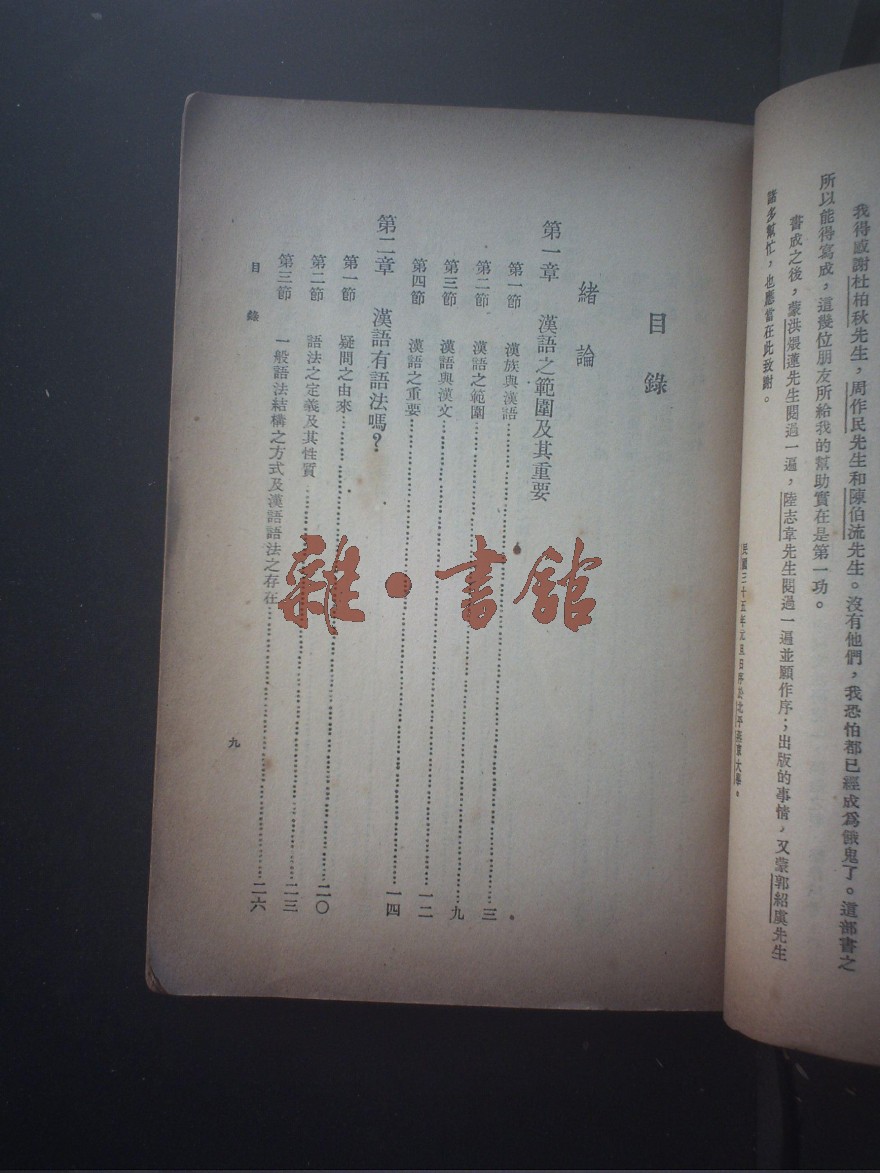 我得感謝杜柏秋先生，周作民先生和陳伯流先生。沒有他們，我恐怕都已經成爲餓鬼了。這部書之
所以能得寫成，這幾位朋友所給我的幫助實在是第一功。
書成之後，蒙洪煨蓮先生閱過一遍，陸志韋先生閱過一遍並願作序；出版的事情，又蒙郭紹虞先生
諸多幫忙，也應當在此致謝。
民國三十五年元旦日序於北平燕京大學。
目錄
緒論
第一章 漢語之範圍及其重要
第一節 漢族與漢語……三
第二節 漢語之範圍……九
第三節 漢語與漢文……一二
第四節 漢語之重要……一四
第二章 漢語有語法嗎？
第一節 疑問之由來……二〇
第二節 語法之定義及其性質……二三
第三節 一般語法結構之方式及漢語語法之存在……二六
目錄
九
雜·書館